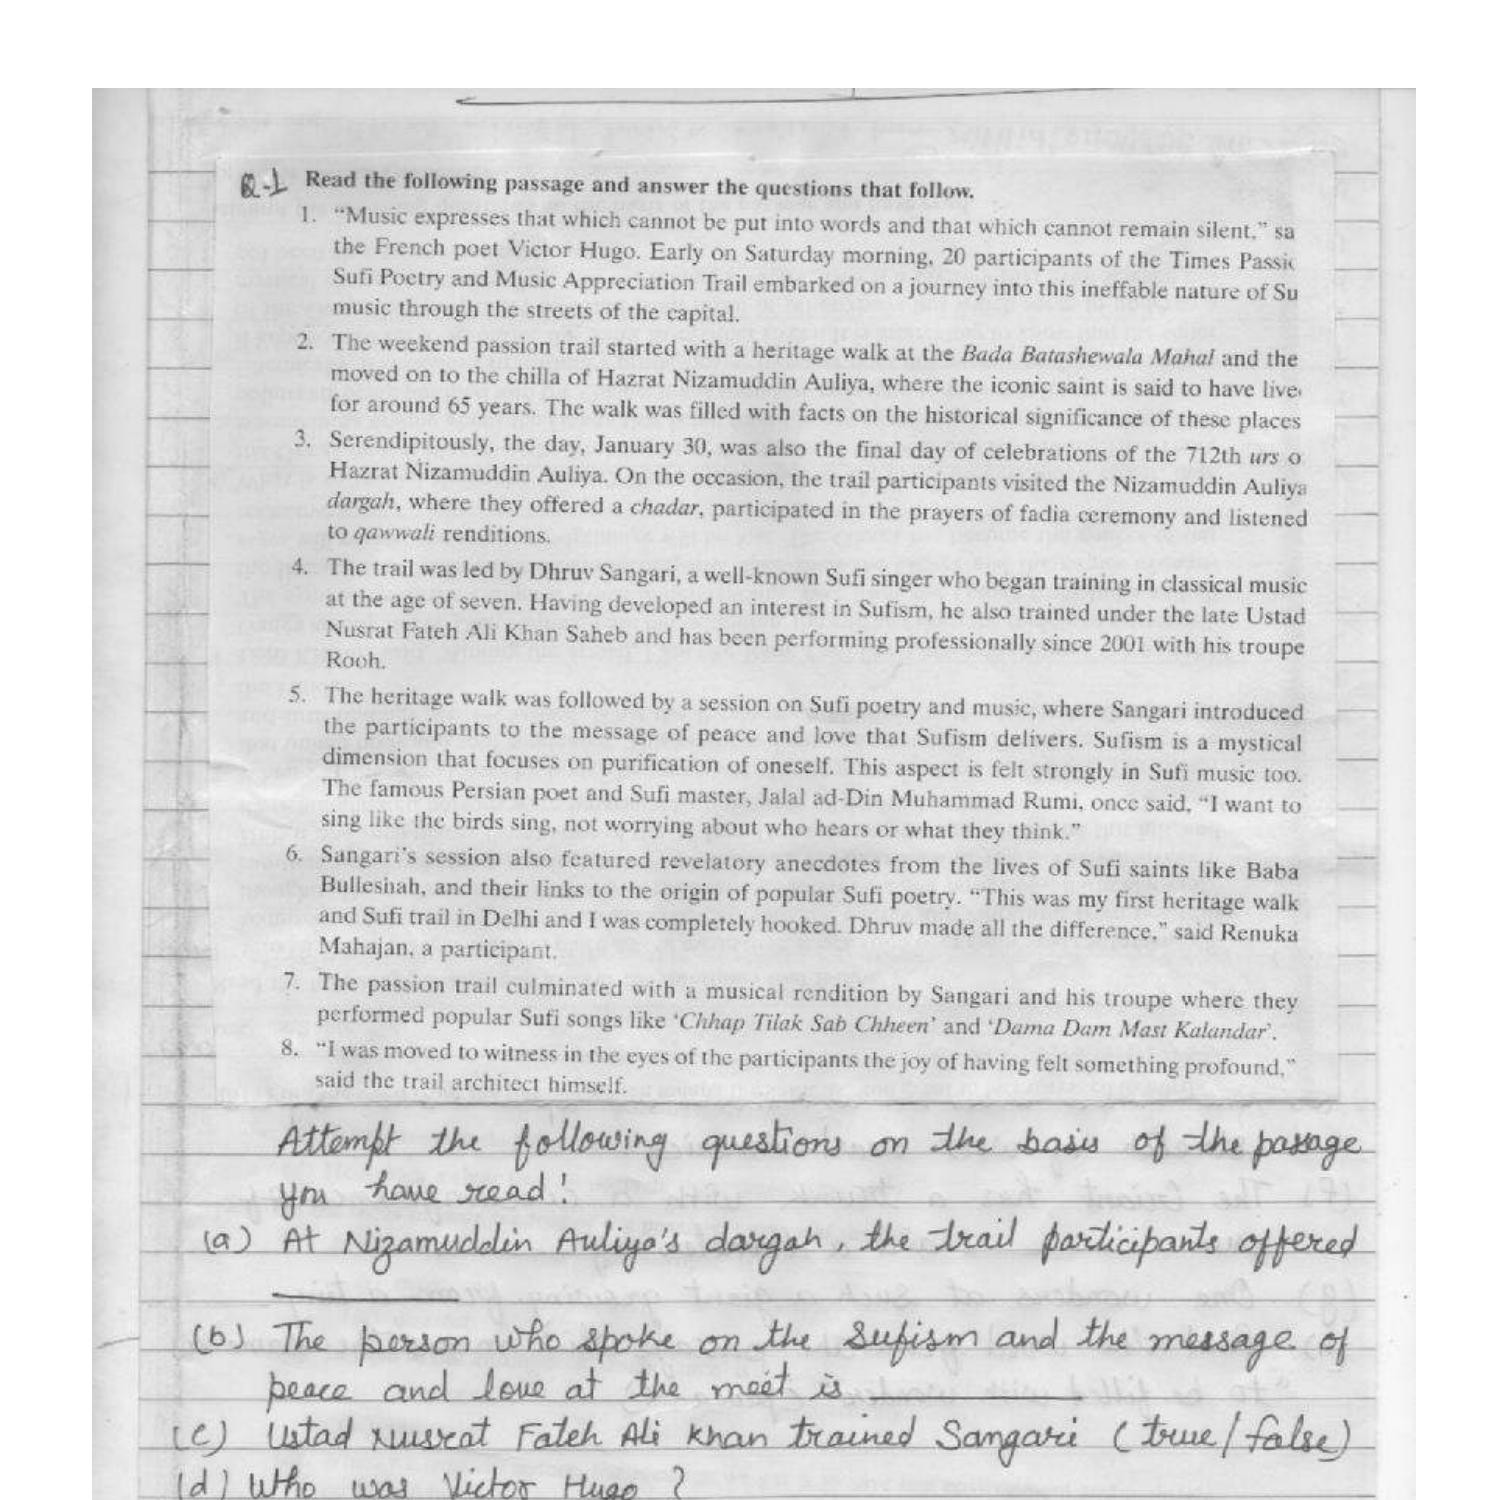 Q-1 Read the following passage and answer the questions that follow.
1. "Music expresses that which cannot be put into words and that which cannot remain silent," sa
the French poet Victor Hugo. Early on Saturday morning, 20 participants of the Times Passio
Sufi Poetry and Music Appreciation Trail embarked on a journey into this ineffable nature of Su
music through the streets of the capital.
2. The weekend passion trail started with a heritage walk at the Bada Batashewala Mahal and the
moved on to the chilla of Hazrat Nizamuddin Auliya, where the iconic saint is said to have live
for around 65 years. The walk was filled with facts on the historical significance of these places
3. Serendipitously, the day, January 30, was also the final day of celebrations of the 712th urs o
Hazrat Nizamuddin Auliya. On the occasion, the trail participants visited the Nizamuddin Auliya
dargah, where they offered a chadar, participated in the prayers of fadia ceremony and listened
to qawwali renditions.
4. The trail was led by Dhruv Sangari, a well-known Sufi singer who began training in classical music
at the age of seven. Having developed an interest in Sufism, he also trained under the late Ustad
Nusrat Fateh Ali Khan Saheb and has been performing professionally since 2001 with his troupe
Rooh.
5. The heritage walk was followed by a session on Sufi poetry and music, where Sangari introduced
the participants to the message of peace and love that Sufism delivers. Sufism is a mystical
dimension that focuses on purification of oneself. This aspect is felt strongly in Sufi music too.
The famous Persian poet and Sufi master, Jalal ad-Din Muhammad Rumi, once said, "I want to
sing like the birds sing, not worrying about who hears or what they think."
6. Sangari's session also featured revelatory anecdotes from the lives of Sufi saints like Baba
Bulleshah, and their links to the origin of popular Sufi poetry. "This was my first heritage walk
and Sufi trail in Delhi and I was completely hooked. Dhruv made all the difference," said Renuka
Mahajan, a participant.
7. The passion trail culminated with a musical rendition by Sangari and his troupe where they
performed popular Sufi songs like 'Chhap Tilak Sab Chheen' and 'Dama Dam Mast Kalandar'.
8. "I was moved to witness in the eyes of the participants the joy of having felt something profound,"
said the trail architect himself.
Attempt the following questions on the basis of the passage
you have read!
(a) At Nizamuddin Auliya's dargah, the trail participants offered
(b) The person who spoke on the Sufism and the message of
peace and love at the meet is
(c) Ustad Nusrat Fateh Ali Khan trained Sangari (true/false)
(d) Who was Victor Hugo ?